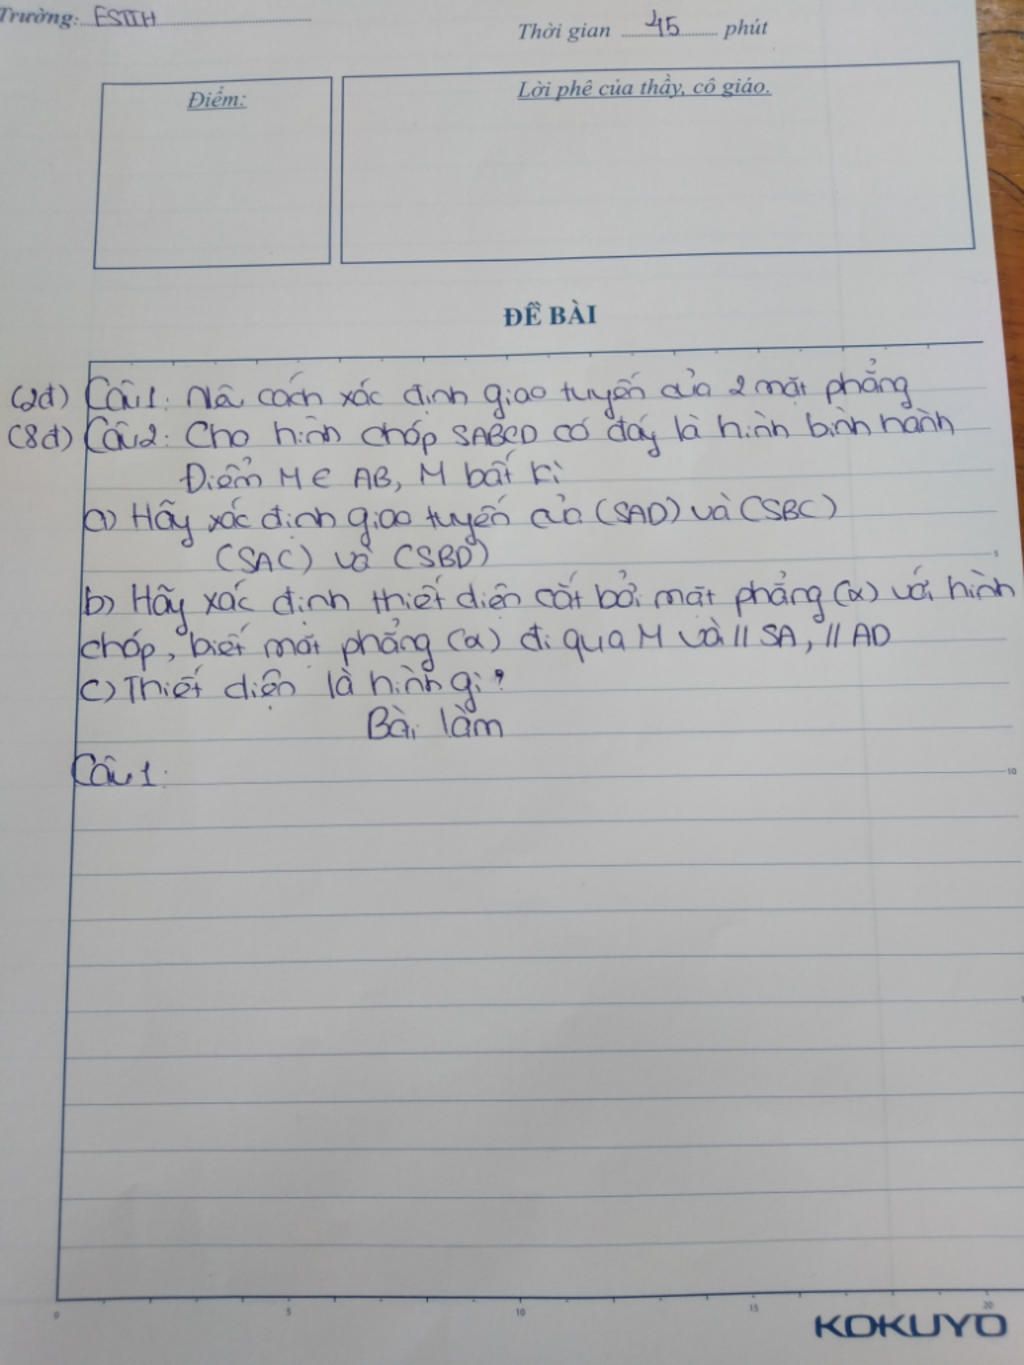 Trường: ESTIH
Thời gian 45 phút
Điểm:
Lời phê của thầy, cô giáo.
ĐỀ BÀI
(2đ) Câu1: Nêu cách xác định giao tuyến của 2 mặt phẳng
(8đ) Câu2: Cho hình chóp SABCD có đáy là hình bình hành
Điểm M ∈ AB, M bất kì
a) Hãy xác định giao tuyến của (SAD) và (SBC)
(SAC) và (SBD)
b) Hãy xác định thiết diện cắt bởi mặt phẳng (α) với hình
chóp, biết mặt phẳng (α) đi qua M và // SA, // AD
c) Thiết diện là hình gì?
Bài làm
Câu 1:
5
10
0 5 10 15 20
KOKUYO